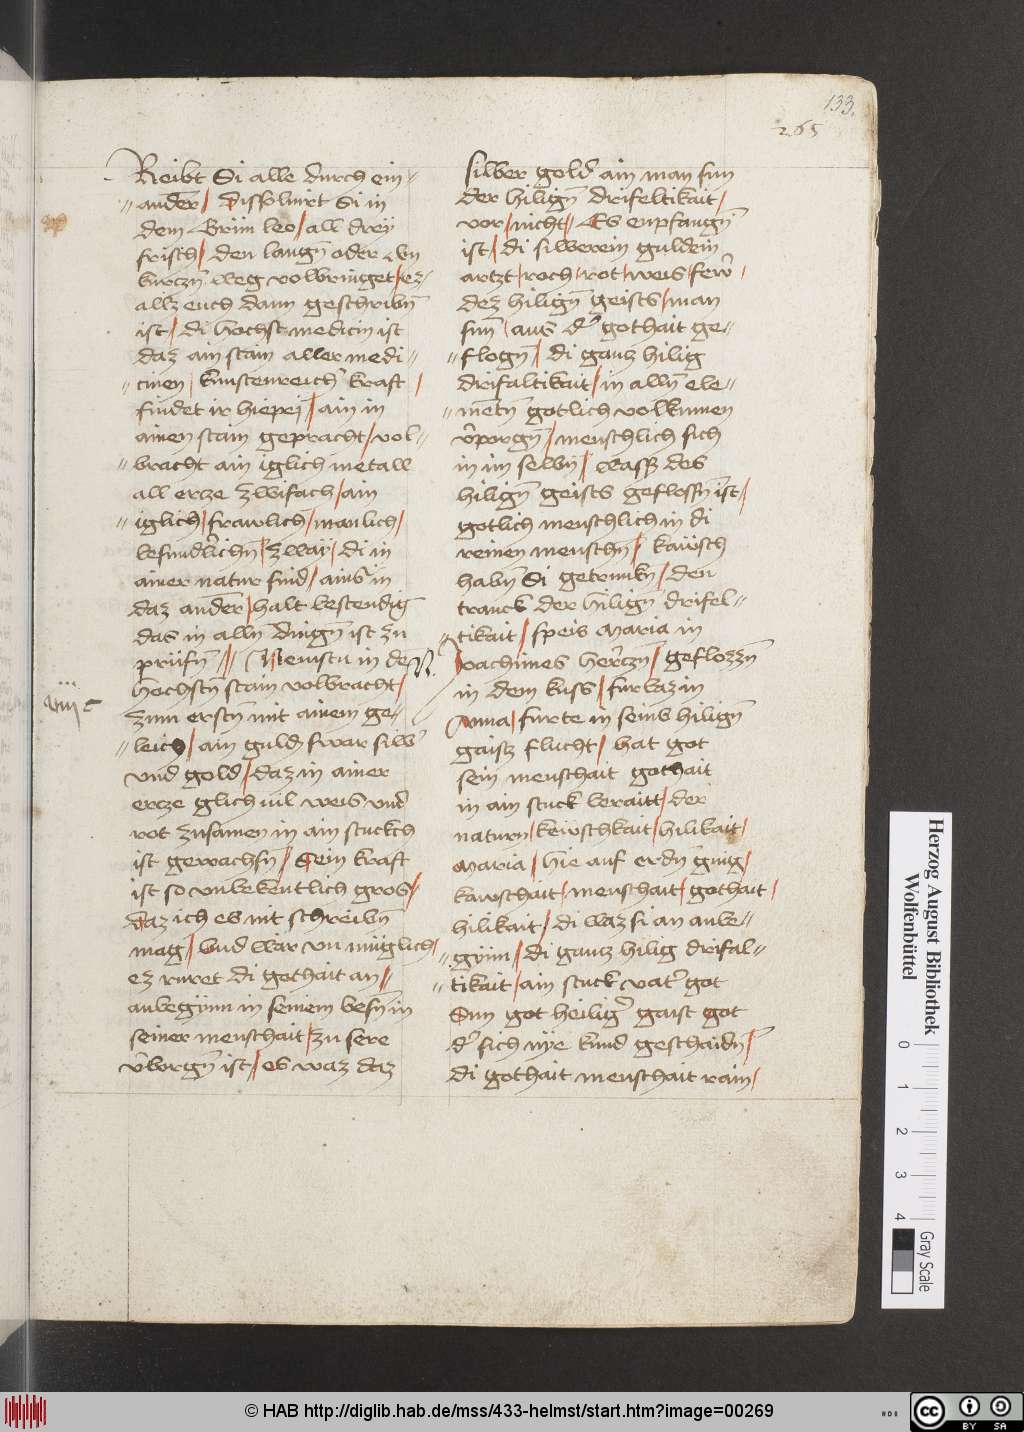 133.
265
Reibt Si alle durch ein-
-ander / Dissoluirt Si in
dem Grüm leo / all dreÿ
frisch / den langn̄ oder den
kurczn̄ weg volbringet / ez-
allz euch dann geschribn̄
ist / di hochst medicin ist
daz ain stain aller medi-
-cinen / kunstenreich kraft /
findet ir hiepeÿ / ain in
ainen stain gepracht / vol-
-bracht ain iglich metall
all ercze zwifach / ain
-iglich / frawlich / manlich /
besunderlichn̄ / zwaÿ / di in
ainer natur sind / ains in
daz ander / halt bestendig
das in alln̄ dingn̄ ist zu
prüfn̄ // Nembstu in den
hochstn̄ stain volbracht /
viij c
zum erstn̄ mit ainem ge-
-leich / ain guld swar silber
vnd gold / daz in ainer
ercze glich vil weis vnd
rot zusamen in ain stuckch
ist gewachsn̄ / Sein kraft
ist so vnbekentlich gros /
daz ich es nit schreibn̄
mag / Vnd wär vn müglich /
ez ruret di gothait an //
anbegynn in seinem besn̄ in
seiner menschait / zu sere
v̄borgn̄ ist / es waz daz
silber gold ain man sun
der hilign̄ drifeltikait /
vor / nicht // Es enpfangn̄
ist / di silwerein guldein
artzt / roch / rot / weis / fewr /
dez hilign̄ geists / man
sun / aus der gothait ge-
-flogn̄ / di gancz hilig
drifaltikait / in alln̄ ele-
-mētn̄ gotlich volkumen
v̄porgn̄ / menschlich sich
in im selbn̄ / wass des
hilign̄ geists geflossn̄ ist /
gotlich menschlich in di
reinen menschn̄ / kaüsch
habn̄ Si getrunkn̄ / den
tranck der hilign̄ drifel-
-tikait / speis Maria in
Joachimes herczn̄ / geflozzn̄
in dem kuss / furbaz in
Anna / furte in seins hilign̄
gaistz flucht / hat got
sein menschait gothait
in ain stuck beraitt / der
naturn / keüschkait / hilikait /
Maria / hie auf erdn̄ gnüg /
kawschait / menschait / gothait /
hilikait / di waz si an anbe-
-gynn / di gancz hilig drifal-
-tikait / ain stuck vater got
Sun got heiliger gaist got
der sich nÿe kund geschaidn̄ /
di gothait menschait rain /
Herzog August Bibliothek
Wolfenbüttel
0 1 2 3 4
Gray Scale
© HAB http://diglib.hab.de/mss/433-helmst/start.htm?image=00269
cc BY SA